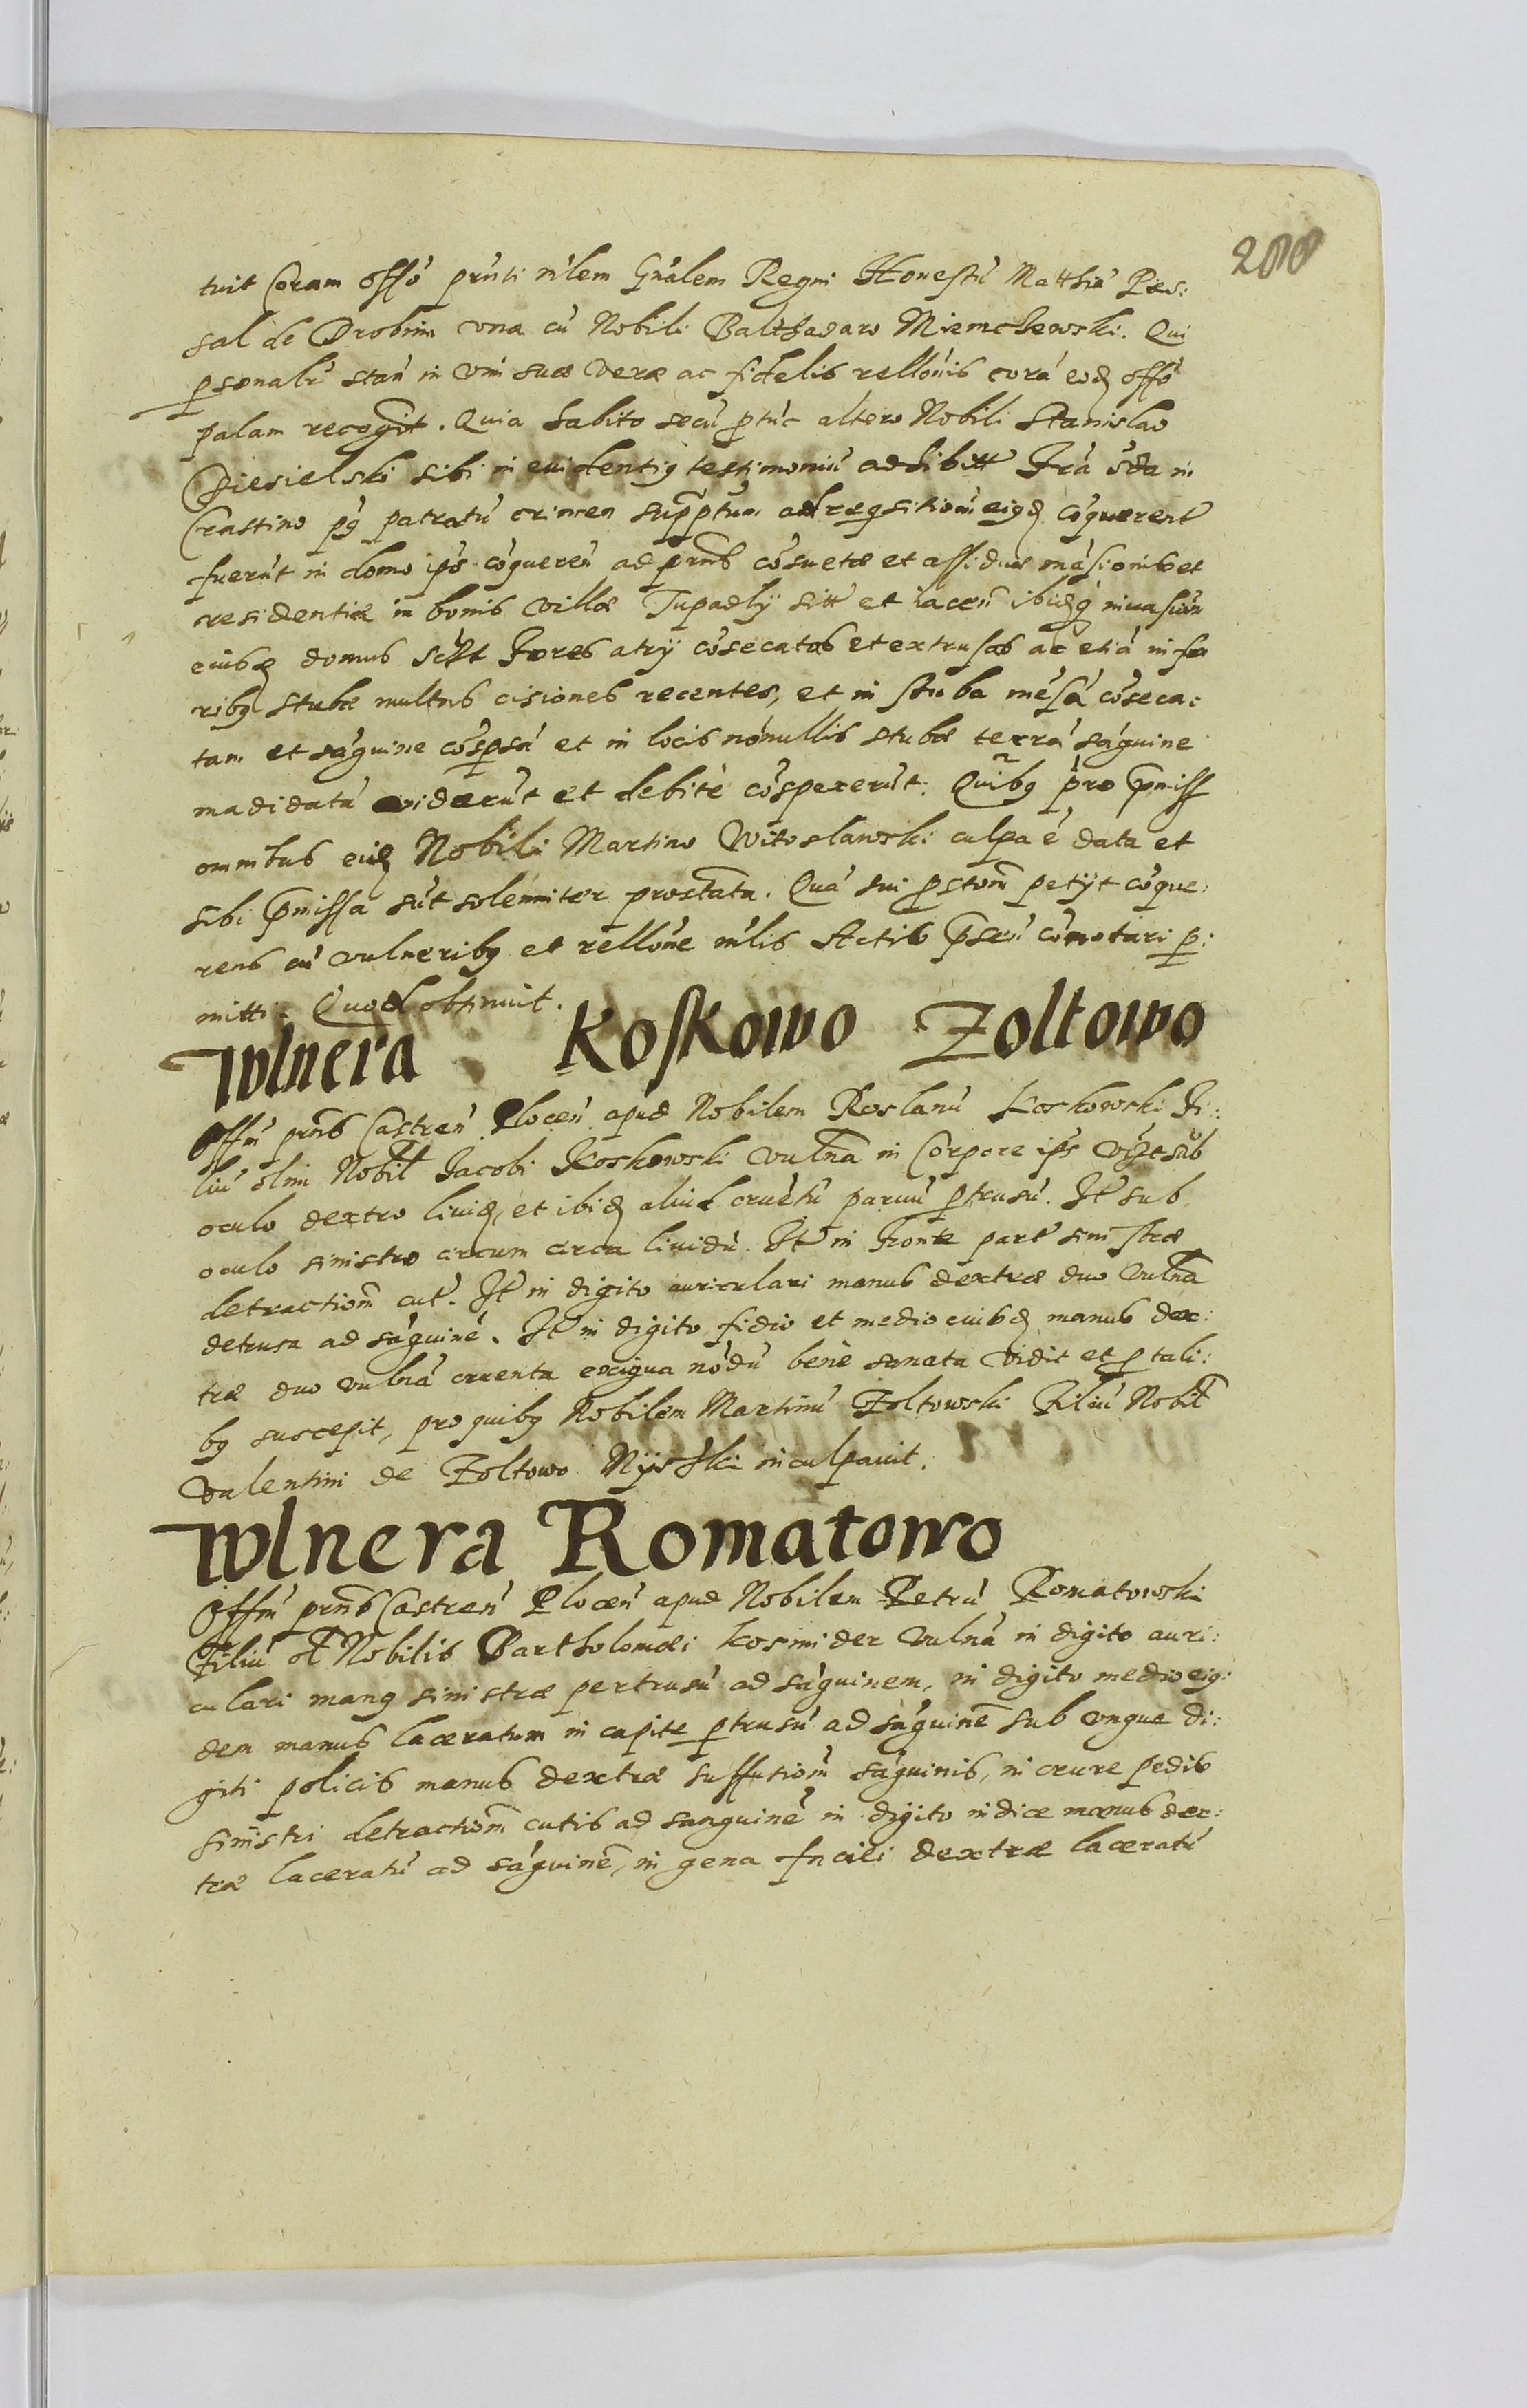 200
tuit Coram offõ prñti ñlem Gñalem Regni Honestũ Matthiã Pes:
sal de Drobnin vna cũ Nobili Balthasaro Miemchewski. Qui
psonalr stañ in vim suæ veræ ac fidelis rellõnis corã eod offõ
palam recogñit. Quia habito secũ ptũc altero Nobili Stanislao
Diesielski sibi in euidentiq testimoniũ adhibitt
Crastino pq patratũ crimen supptum ad reqsitionẽ eiqd cõquerent
fuerũt in domo ips cõquereñ ad prñs cõsuetæ et assiduæ mãsionis et
residentiæ in bonis villæ Tupadly sitt et iaceñ ibidq inuasiuẽ
eiusd domus scilt Fores atrij cõsecatas et extrusas ac etiã in fo
ribq stubæ multas cisiones recentes, et in stuba mẽsã cõseca:
tam et sãguine cõspsã et in locis nõnullis stubæ terrã sãguine
madidatã viderũt et debitè cõspexerũt. Quibq pro pmiss
omnibus eid Nobili Martino Witoslawski culpa ẽ data et
sibi pmissa sũt solẽnniter prostata. Quã sui pstom petijt cõque:
rens cũ vulneribq et rellõne ñlis Actis pseñ cõnotari p:
mitti. Quod obtinuit.
Wlnera Koskowo Zoltowo
Offm prñs Castreñ Ploceñ apud Nobilem Roslanũ Koskowski Fi:
liũ olim Nobil Jacobi Koskowski vulña in Corpore ips vizt sub
oculo dextro liuid, et ibid aliud cruẽtũ paruũ ptrusũ. It sub
oculo sinistro circum circa liuidũ. It in Fronte part sinistræ
detractiom cut. It in digito auriculari manus dextræ duo vulña
detrusa ad sãguinẽ. It in digito fidio et medio eiusd manus dex:
træ duo vulña cruenta exigua nõdũ benè sanata vidit et p tali:
bq suscepit, pro quibq Nobilem Martinũ Zoltowski Filiũ Nobil
Valentini de Zoltowo Nijski inculpauit.
Wlnera Romatowo
Offm prñs Castreñ Ploceñ apud Nobilem Petrũ Romatowski
Filiũ ol Nobilis Bartholomæi Kosmider vulña in digito auri:
culari manq sinistræ pertrusũ ad sãguinem, in digito medio eiq:
dem manus laceratum in capite ptrusũ ad sãguinẽ sub vngue di:
giti policis manus dextræ suffutiom sãguinis, in crure pedis
sinistri detractiom cutis ad sanguinẽ in digito indice manus dex:
træ laceratũ ad sãguinẽ, in gena faciei dextræ laceratũ